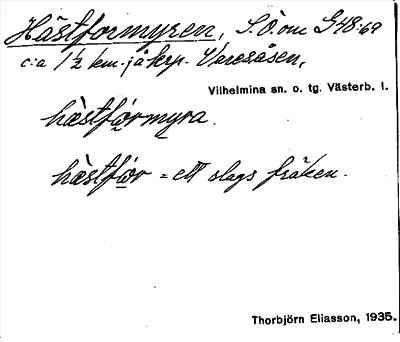 Hästformyren, S.Ö. om G48:69
c:a 1/2 km. på krp. Varesåsen,
Vilhelmina sn. o. tg. Västerb. l.
hæstfórmyra.
hæstfór = ett slags fräken.
Thorbjörn Eliasson, 1935.